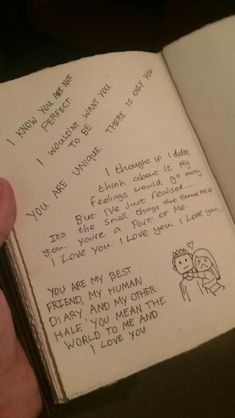 I KNOW YOU ARE NOT
PERFECT
I WOULDN'T WANT YOU
TO BE
YOU ARE UNIQUE. THERE IS ONLY YOU
I thought IF I didn't
think about it My
feelings would go away
But I've Just realised...
It's the small things that remind me of
you. you're a Part of Me.
I Love you. I Love you. I Love you...
YOU ARE MY BEST
FRIEND, MY HUMAN
DIARY AND MY OTHER
HALF. YOU MEAN THE
WORLD TO ME AND
I LOVE YOU